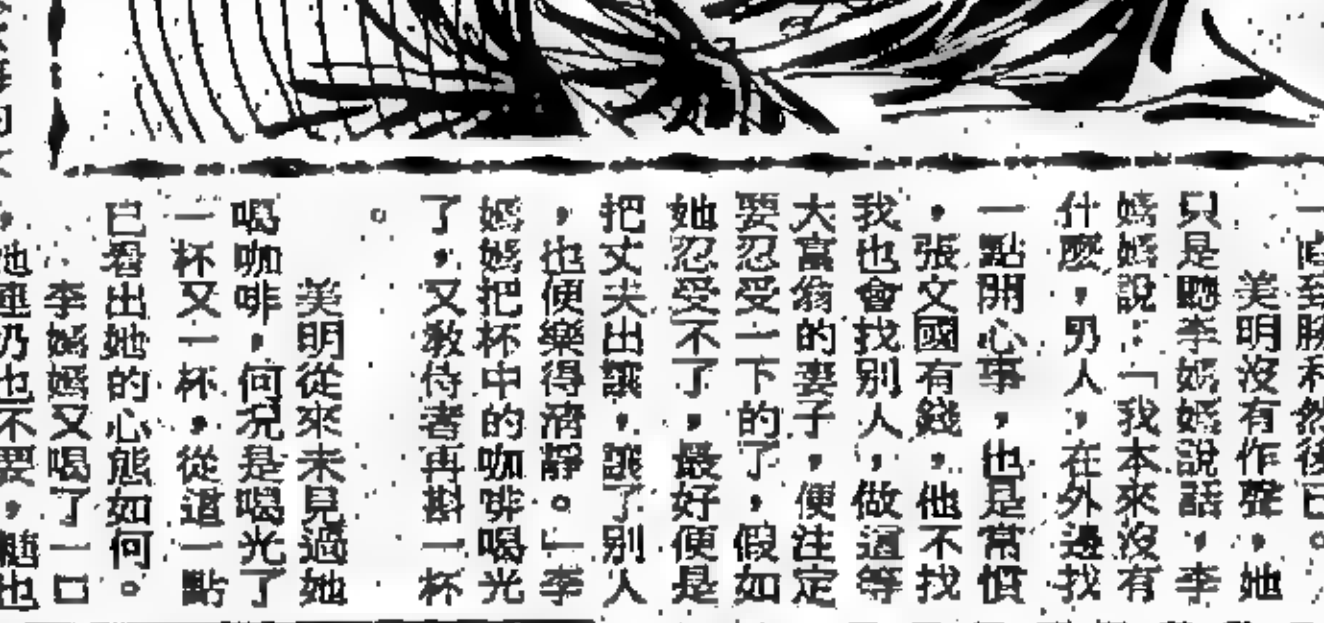 一直到勝利然後已。
美明沒有作聲,她
只是聽李媽媽說話,李
媽媽說:「我本來沒有
什麼,男人,在外邊找
一點開心事,也是常慣
,張文國有錢,他不找
我也會找別人,做這等
大富翁的妻子,便注定
要忍受一下的了,假如
她忍受不了,最好便是
把丈夫出讓,讓了別人
,也便樂得清靜。」李
媽媽把杯中的咖啡喝光
了,又教侍者再斟一杯
。
美明從來未見過她
喝咖啡,何況是喝光了
一杯又一杯,從這一點
已看出她的心態如何。
李媽媽又喝了一口
,她連奶也不要,糖也